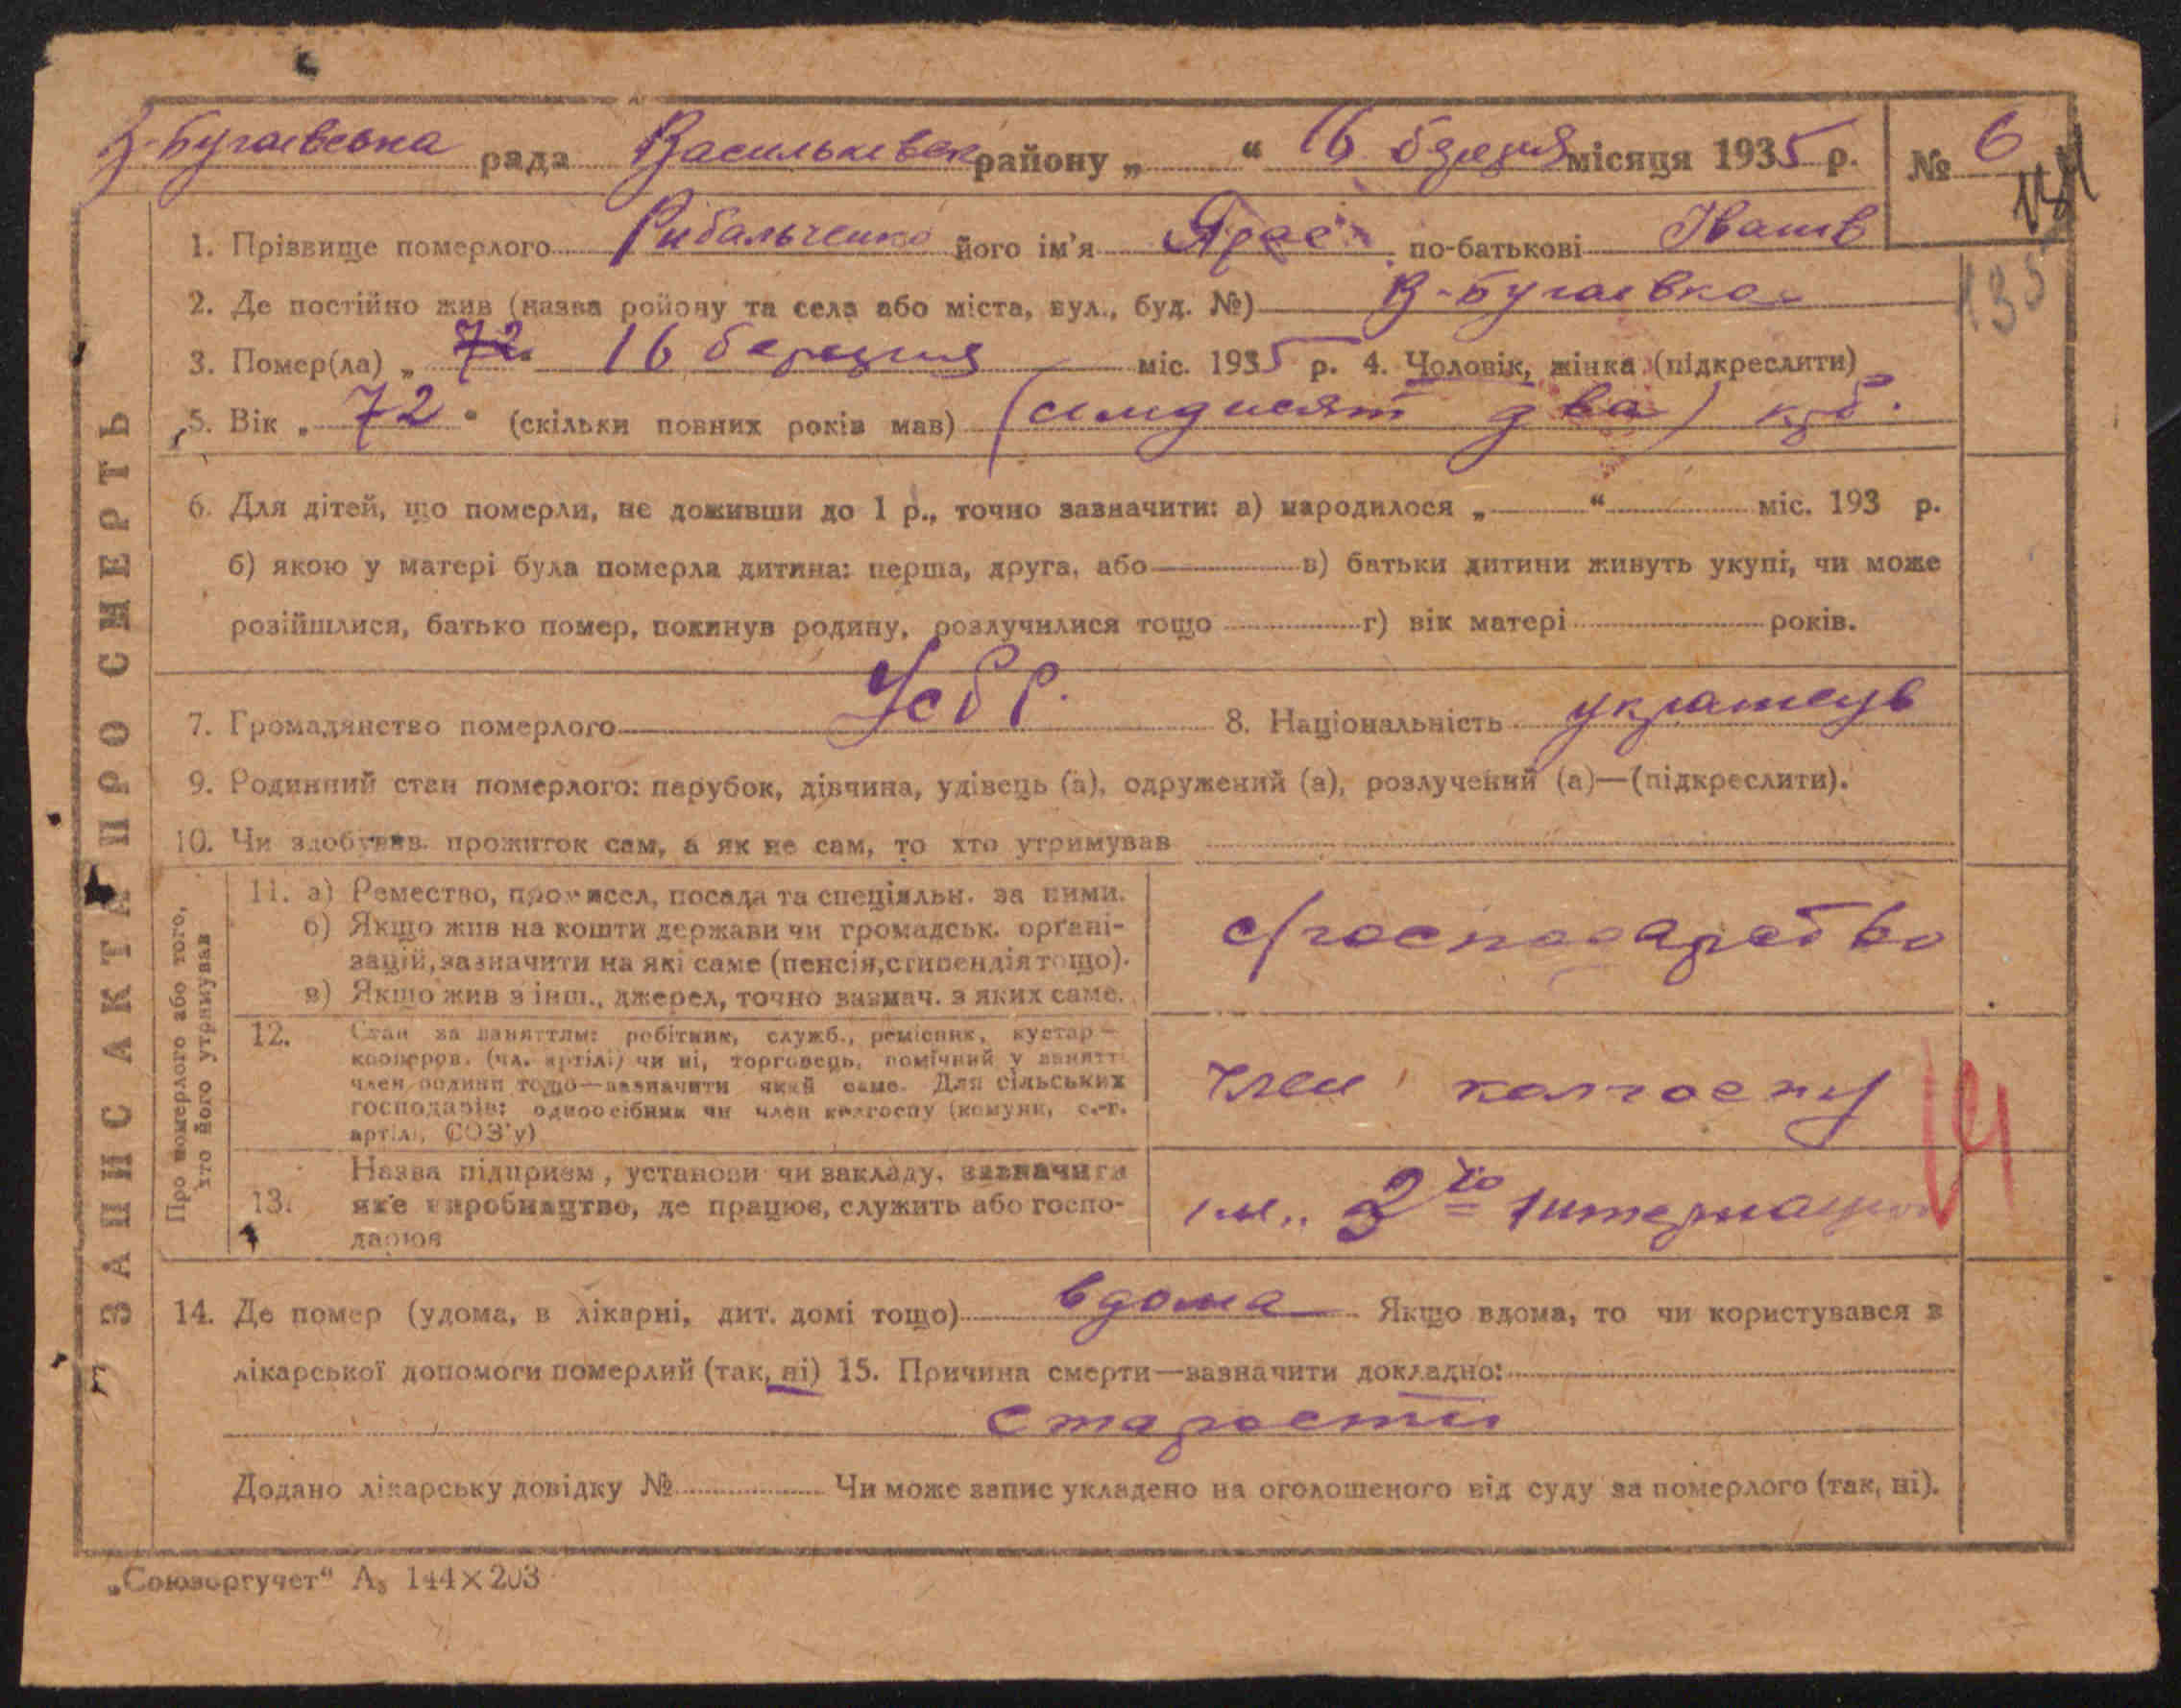 В-Бугаївська рада Васильківськ району „ “ 16 березня місяця 1935 р. № 6
1. Прізвище померлого Рибальченко його ім'я по-батькові Іванів
135
2. Де постійно жив (назва ройону та села або міста, вул., буд. №) В-Бугаївка
3. Помер(ла) „ 72 16 березня міс. 1935 р. 4. Чоловік, жінка (підкреслити)
5. Вік „ 72 “ (скільки повних років мав) (симдисят два)
6. Для дітей, що померли, не доживши до 1 р., точно зазначити: а) народилося „ “ міс. 193 р.
б) якою у матері була померла дитина: перша, друга, або в) батьки дитини живуть укупі, чи може
розійшлися, батько помер, покинув родину, розлучилися тощо г) вік матері років.
7. Громадянство померлого 8. Національність українець
9. Родинний стан померлого: парубок, дівчина, удівець (а), одружений (а), розлучений (а)—(підкреслити).
10. Чи здобував прожиток сам, а як не сам, то хто утримував
ЗАПИС АКТА ПРО СМЕРТЬ
Про померлого або того,
хто його утримував
11. а) Ремество, промисел, посада та спеціяльн. за ними.
б) Якщо жив на кошти держави чи громадськ. орґані-
зацій, зазначити на які саме (пенсія, стипендія тощо).
в) Якщо жив з інш., джерел, точно зазнач. з яких саме.
с/господарство
12. Стан за заняттям: робітник, служб., ремісник, кустар—
кооперов. (чл. артілі) чи ні, торговець, помічний у занятті
член родини тощо—зазначити який саме. Для сільських
господарів: одноосібник чи член колгоспу (комуни, с.-г.
артілі, СОЗ'у)
член колгоспу
13. Назва підприєм, установи чи закладу, зазначити
яке виробництво, де працює, служить або госпо-
дарює
ім. 3го Інтернаціон
14. Де помер (удома, в лікарні, дит. домі тощо) вдома Якщо вдома, то чи користувався з
лікарської допомоги померлий (так, ні) 15. Причина смерти—зазначити докладно:
старости
Додано лікарську довідку № Чи може запис укладено на оголошеного від суду за померлого (так, ні).
„Союзоргучет“ А₅ 144×203